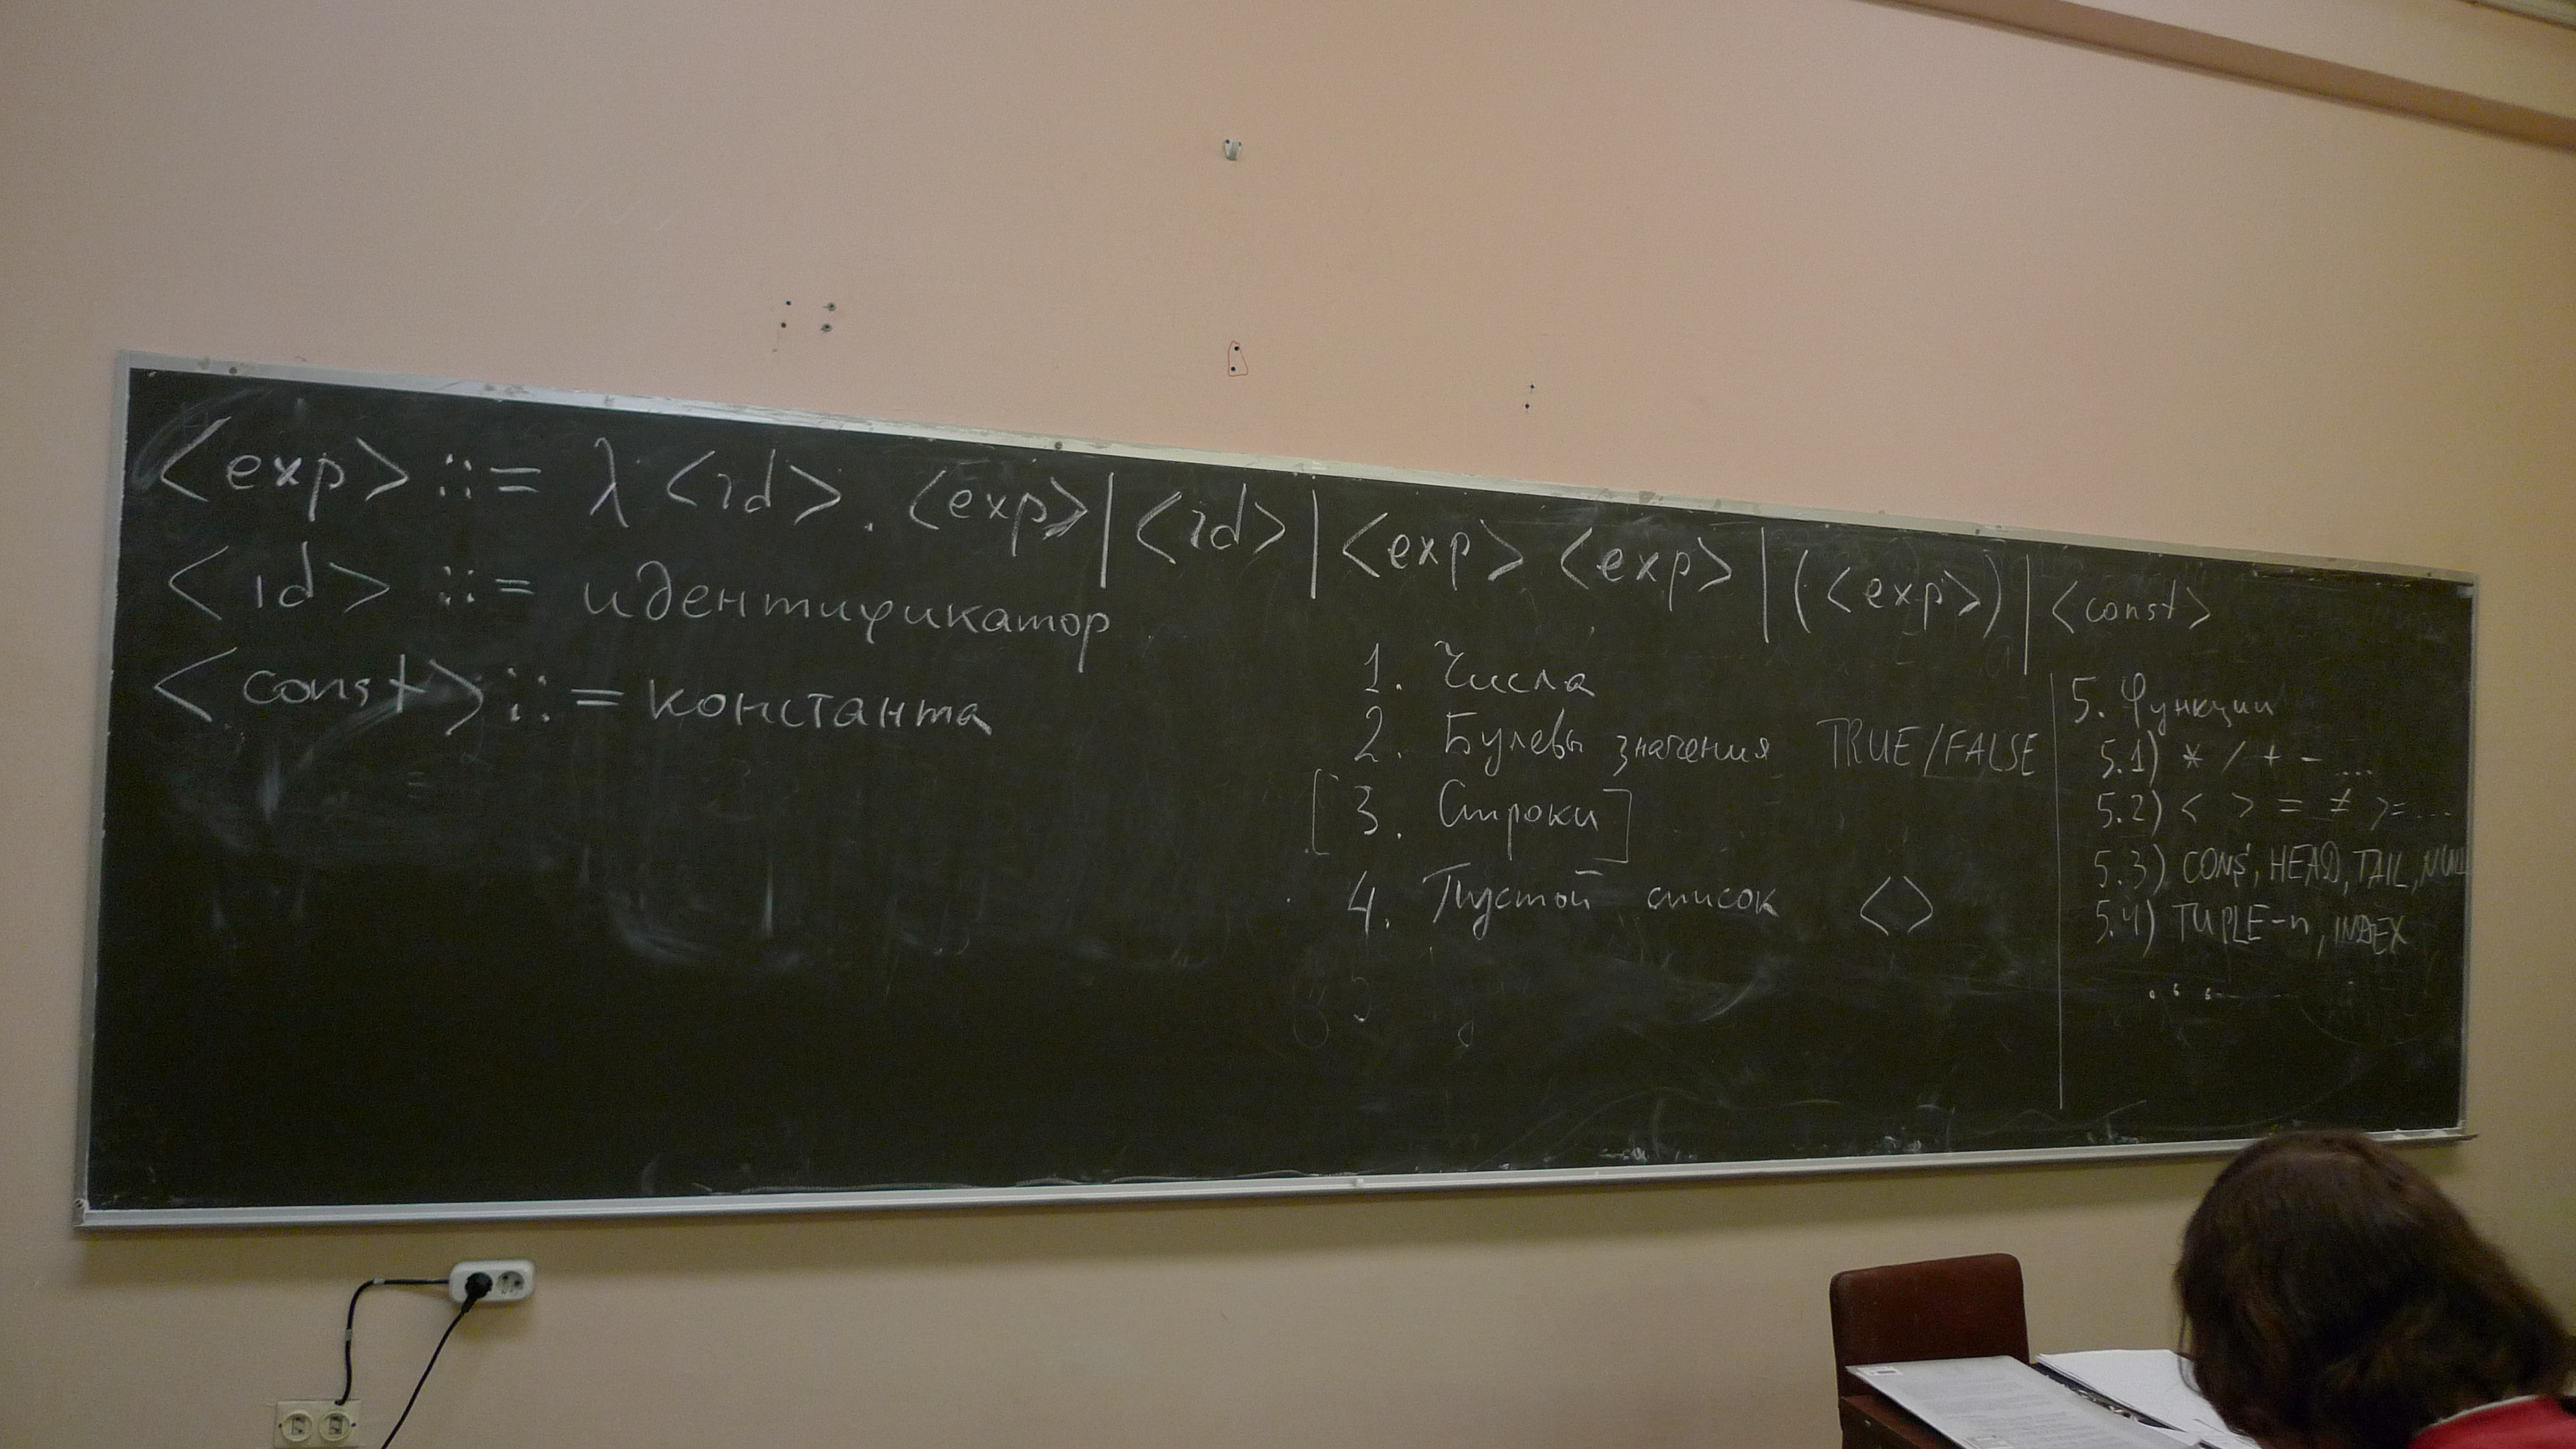 <exp> ::= λ <id>. <exp> | <id> | <exp> <exp> | (<exp>) | <const>
<id> ::= идентификатор
<const> ::= константа
1. Числа
2. Булевы значения TRUE/FALSE
[3. Строки]
4. Пустой список <>
5
5. Функции
5.1) * / + - ...
5.2) < > = ≠ >= ...
5.3) CONS, HEAD, TAIL, NULL
5.4) TUPLE-n, INDEX
...